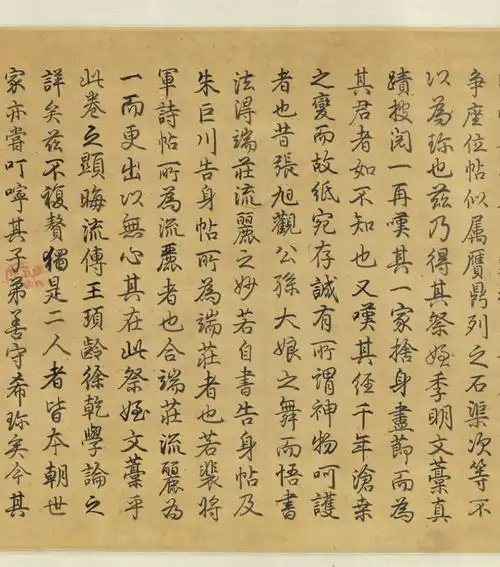 争座位帖似属赝鼎列之石渠次等不
以為珎也兹乃得其祭姪季明文藁真
蹟披閲一再嘆其一家捨身盡節而為
其君者如不知也又嘆其經千年滄桒
之變而故紙宛存誠有所謂神物呵護
者也昔張旭觀公孫大娘之舞而悟書
法得端莊流麗之妙若自書告身帖及
朱巨川告身帖所為端莊者也若裴將
軍詩帖所為流麗者也合端莊流麗為
一而更出以無心其在此祭姪文藁乎
此卷之顯晦流傳王頊齡徐乾學論之
詳矣兹不復贅獨是二人者皆本朝世
家亦嘗叮嚀其子弟善守希珎矣今其